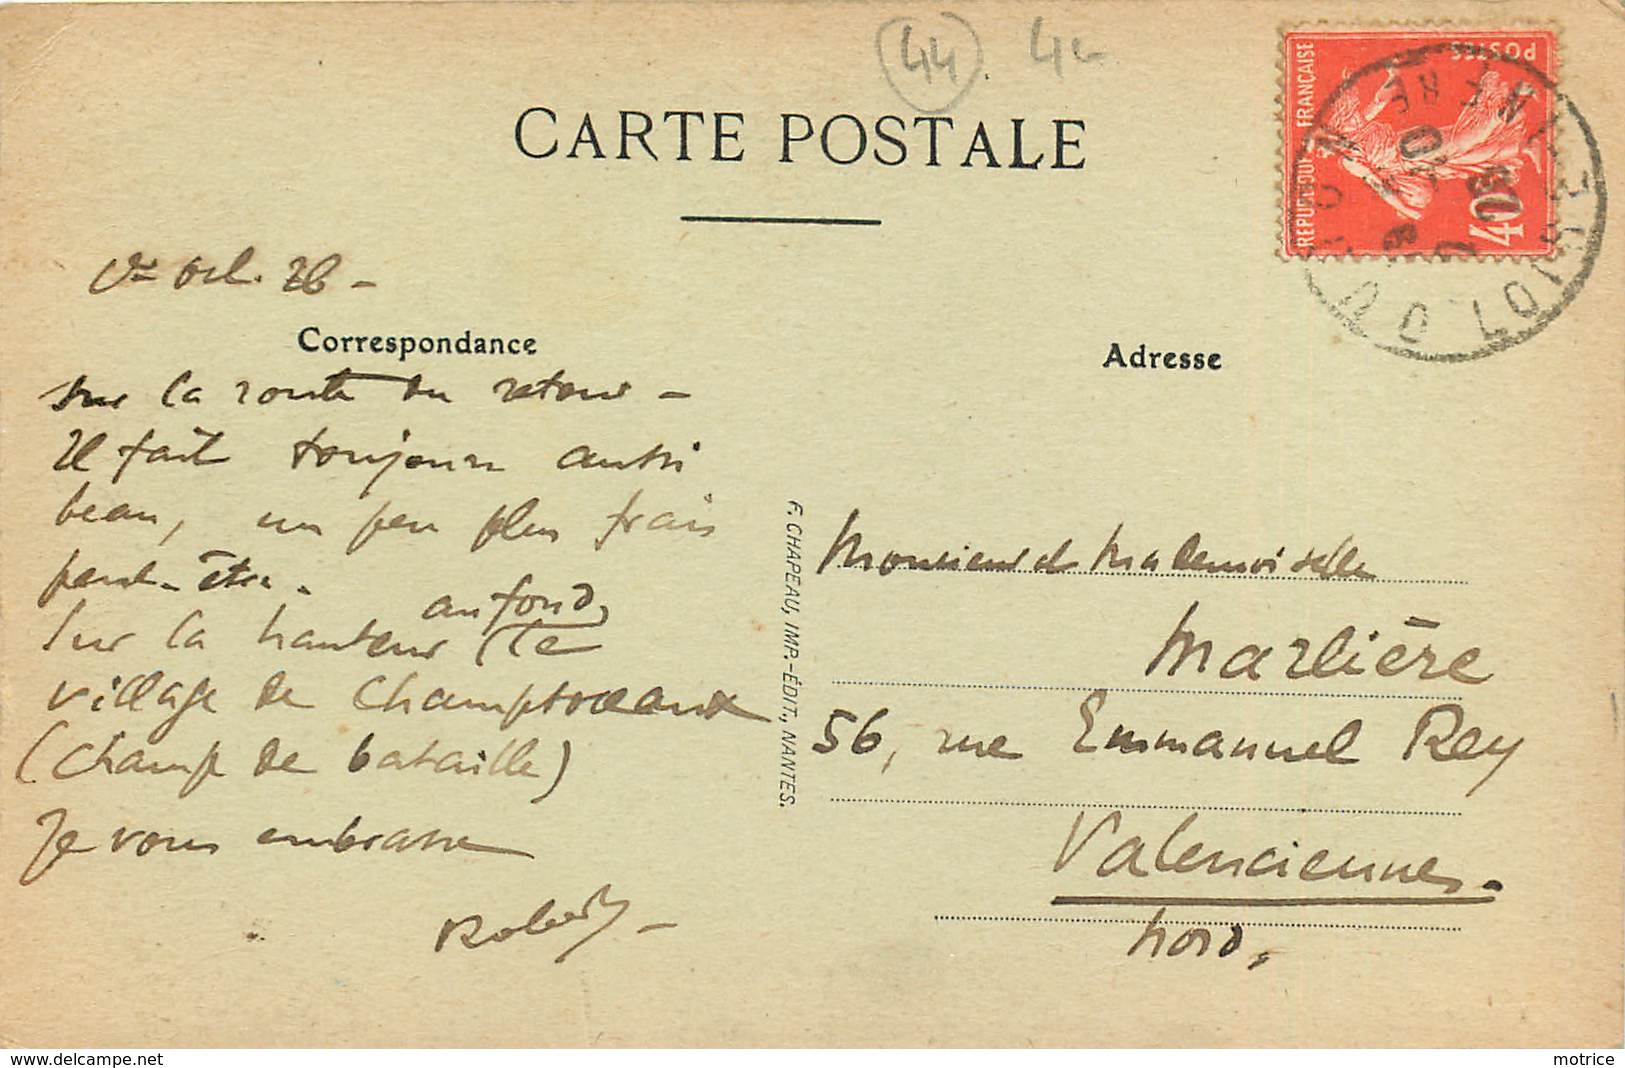 44 44
CARTE POSTALE
REPUBLIQUE FRANÇAISE
POSTES
40c
oct. 26 -
Correspondance
Adresse
sur la route du retour -
Il fait toujours aussi
beau, un peu plus frais
peut-être.
au fond,
Sur la hauteur (le
village de Champtoceaux
(champ de bataille)
Je vous embrasse
Robert -
F. CHAPEAU, IMP.-ÉDIT., NANTES.
Monsieur et Mademoiselle
Marlière
56, rue Emmanuel Rey
Valenciennes.
Nord.
delcampe.net
motrice